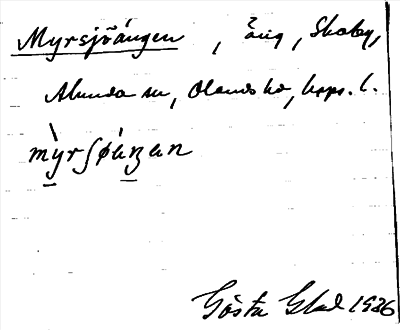 Myrsjöängen, äng, Skoby,
Alunda sn, Olands hd, Upps. l.
mỳrʃøáŋen
Gösta Glad 1936